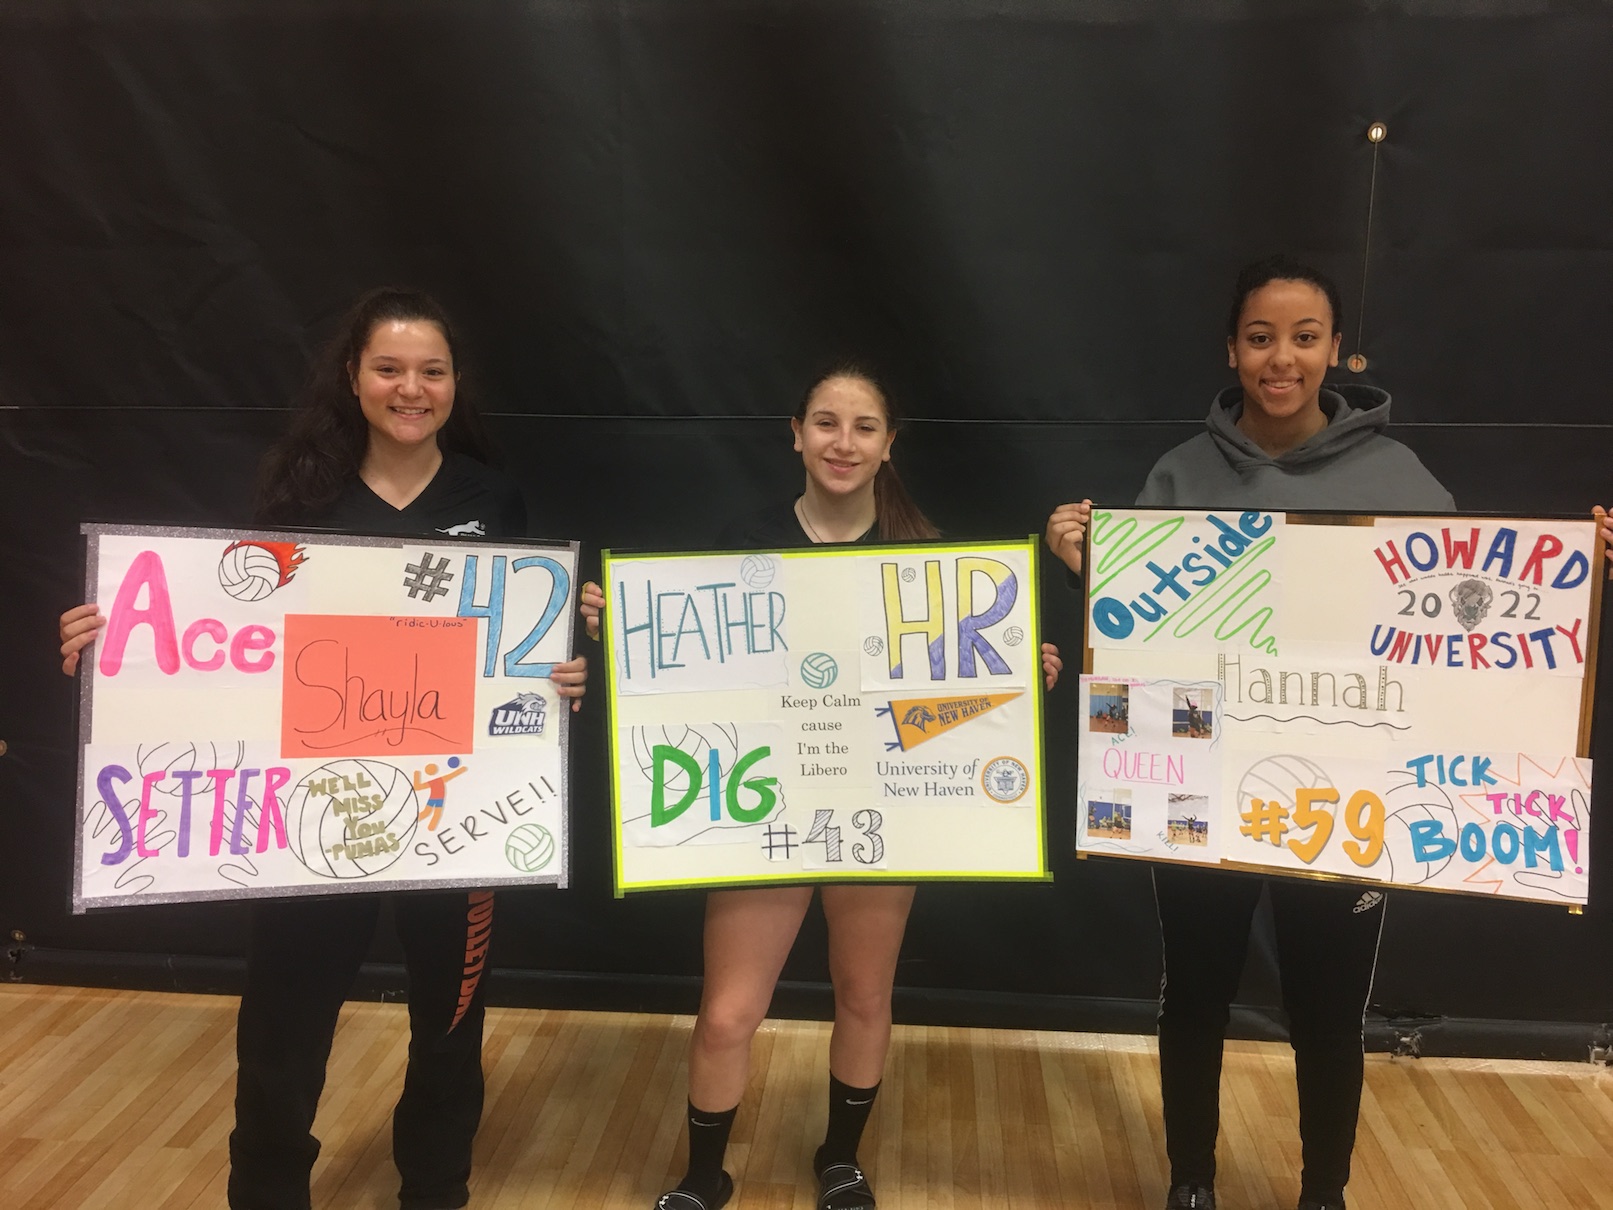 Ace
#42
"ridic-U-lous"
Shayla
UNH
WILDCATS
SETTER
WE'LL
MISS
YOU
-PUMAS
SERVE!!
VOLLEYBALL
HEATHER
HR
Keep Calm
cause
I'm the
Libero
UNIVERSITY OF
NEW HAVEN
University of
New Haven
DIG
#43
Outside
HOWARD
2022
UNIVERSITY
Hannah
ACE!
QUEEN
KILL!
#59
TICK
TICK
BOOM!
adidas